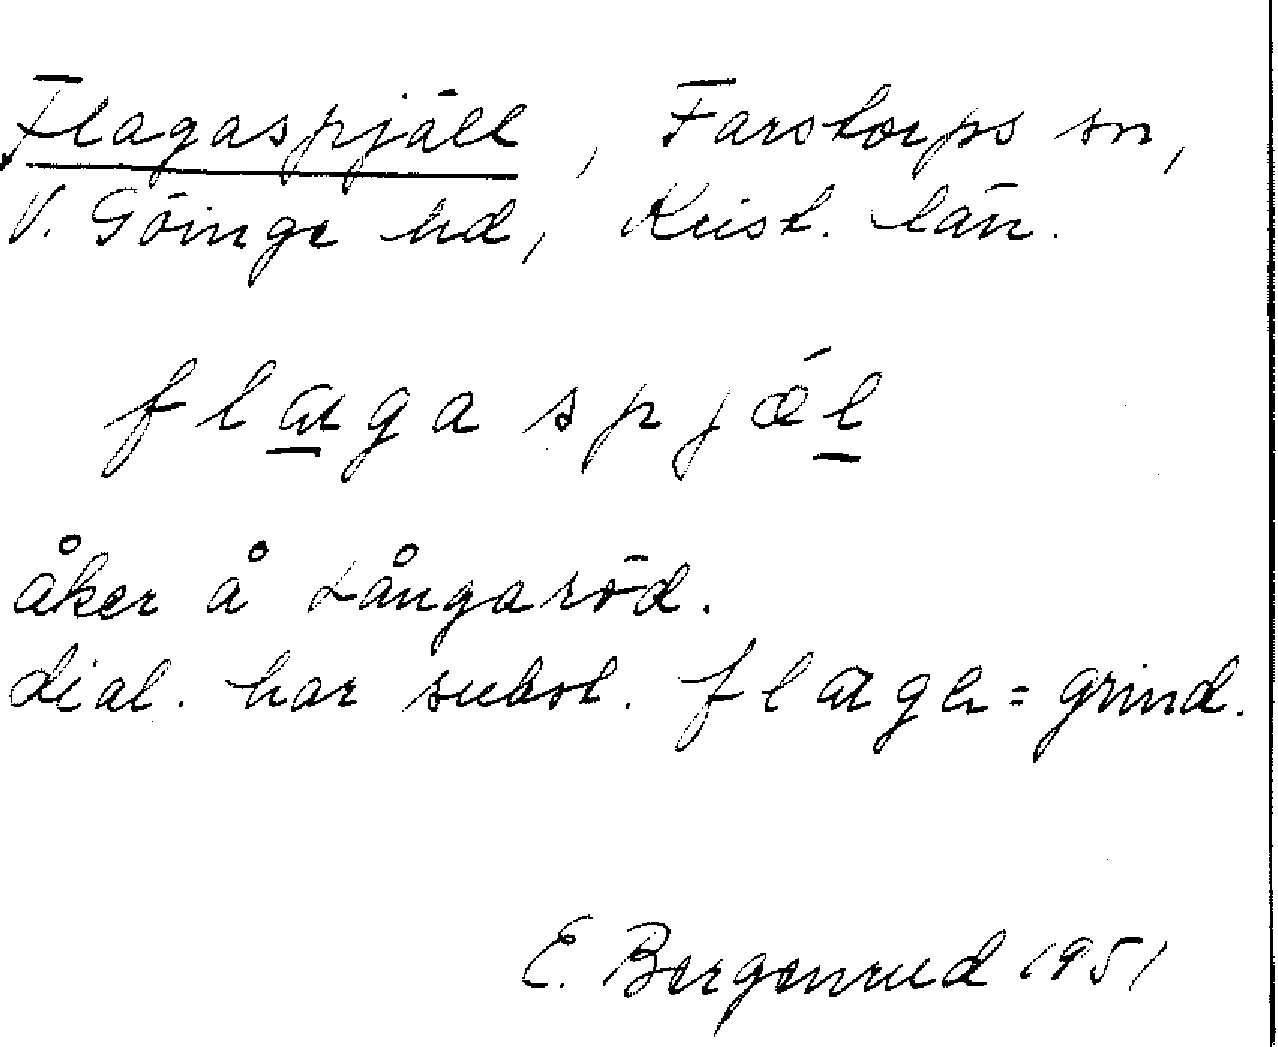 Flagaspjäll, Farstorps sn,
V. Göinge hd, Krist. län.
flagaspjǽl
åker å Långaröd.
dial. har subst. flaga = grind.
E. Bergenrud 1951